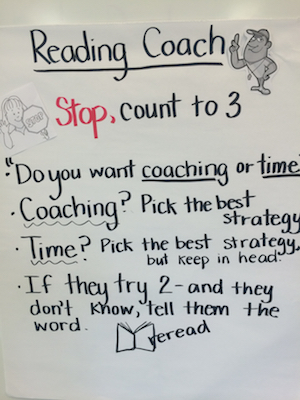 Reading Coach
Stop, count to 3
"Do you want coaching or time?
• Coaching? Pick the best
strategy
• Time? Pick the best strategy,
but keep in head.
• If they try 2 - and they
don't know, tell them the
word.
reread